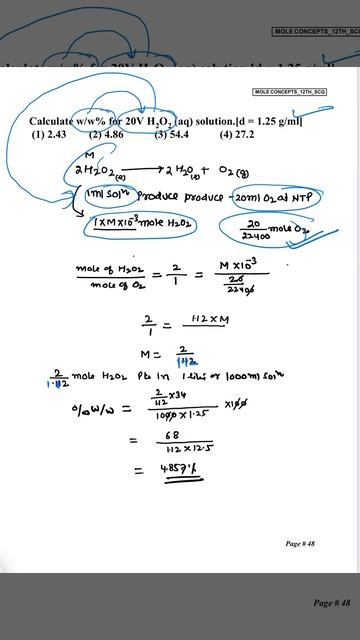 MOLE CONCEPTS_12TH_SCQ
MOLE CONCEPTS_12TH_SCQ
Calculate w/w% for 20V H₂O₂ (aq) solution.[d = 1.25 g/ml]
(1) 2.43 (2) 4.86 (3) 54.4 (4) 27.2
M
2H₂O₂(l) → 2H₂O(l) + O₂(g)
1ml solⁿ Produce produce - 20ml O₂ at NTP
1×M×10⁻³ mole H₂O₂ 20/22400 mole O₂
mole of H₂O₂/mole of O₂ = 2/1 = M×10⁻³/(20/22400)
2/1 = 1.12 × M
M = 2/1.12
2/1.12 mole H₂O₂ Pts in 1 litre or 1000ml solⁿ
% w/w = (2/1.12 × 34)/(1000 × 1.25) × 100
= 68/(1.12 × 12.5)
= 4.857 %
Page # 48
Page # 48